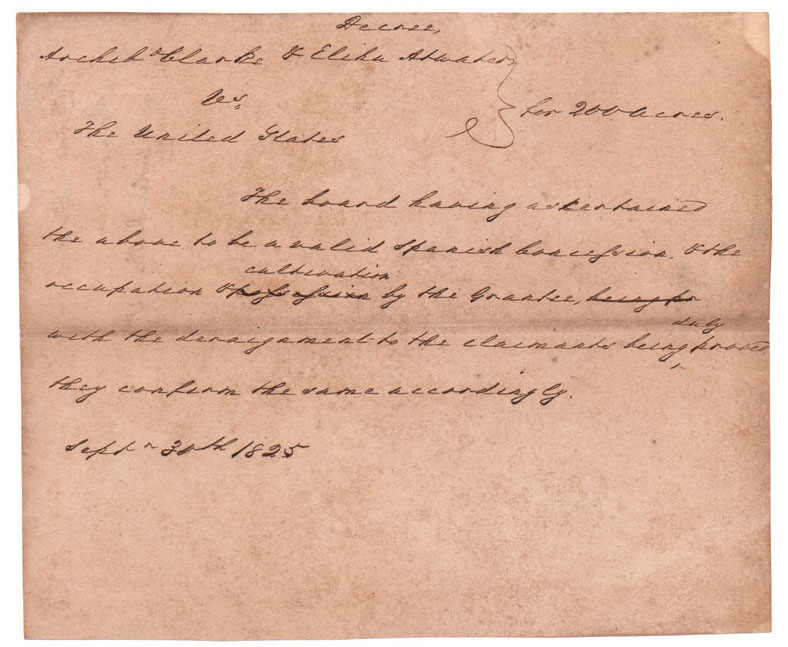 Decree,
Archd Clarke & Elihu Atwater
Vs.
for 200 acres.
The United States
The board having ascertained
the above to be a valid Spanish Concession & the
cultivation
occupation & possession by the Grantee, being pr
duly
with the deraignment to the claimants being proved
they confirm the same accordingly.
Septr 30th 1825